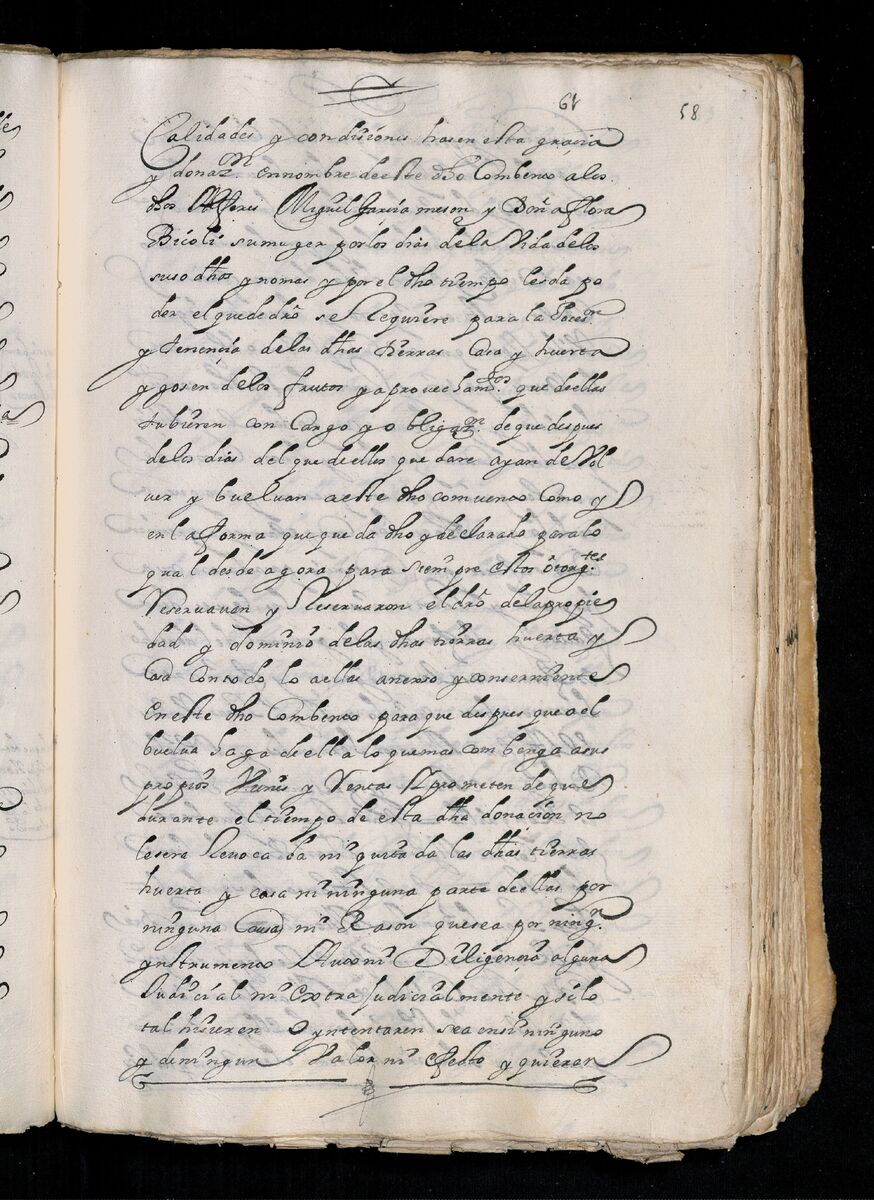 61 58
Calidades y condisiones hasen esta graçia
y donaz.on en nombre de este dho Combento a los
dhos Alferes Miguel Garcia meson y Doña flora
Bicoli su muger por los dias de la Vida de los
suso dhos y no mas y por el dho tiempo les da po
der el que de dro se Requiere para la Poces.on
y tenençia de las dhas tierras Casa y huerta
y gosen de los frutos y aprovecham.tos que de ellas
tubieren con Cargo y obligaz.on de que despues
de los dias del que de ellos que dare ayan de Vol
ver y buelvan a este dho comvento Como y
en la fforma que queda dho y declarado para lo
qual desde agora para siempre estos otorg.tes
Reservavan y Reservaron el dro de la propie
dad y dominio de las dhas tierras huerta y
Casa Con todo lo a ellas anexso y conserniente
en este dho Combento para que despues que a el
buelva haga de ella lo que mas combenga a sus
propios y Rentas Y prometen de que
durante el tiempo de esta dha donaçion no
le sera Revocada ni quitada las dhas tierras
huerta y casa ni ninguna parte de ellas por
ninguna Causa ni Rason que sea por ning.n
ynstrumento Auto ni Diligençia alguna
Judicial ni Extra Judicialmente y si lo
tal hisieren O yntentaren sea en si ninguno
y de ningun Valor ni efecto y quieren